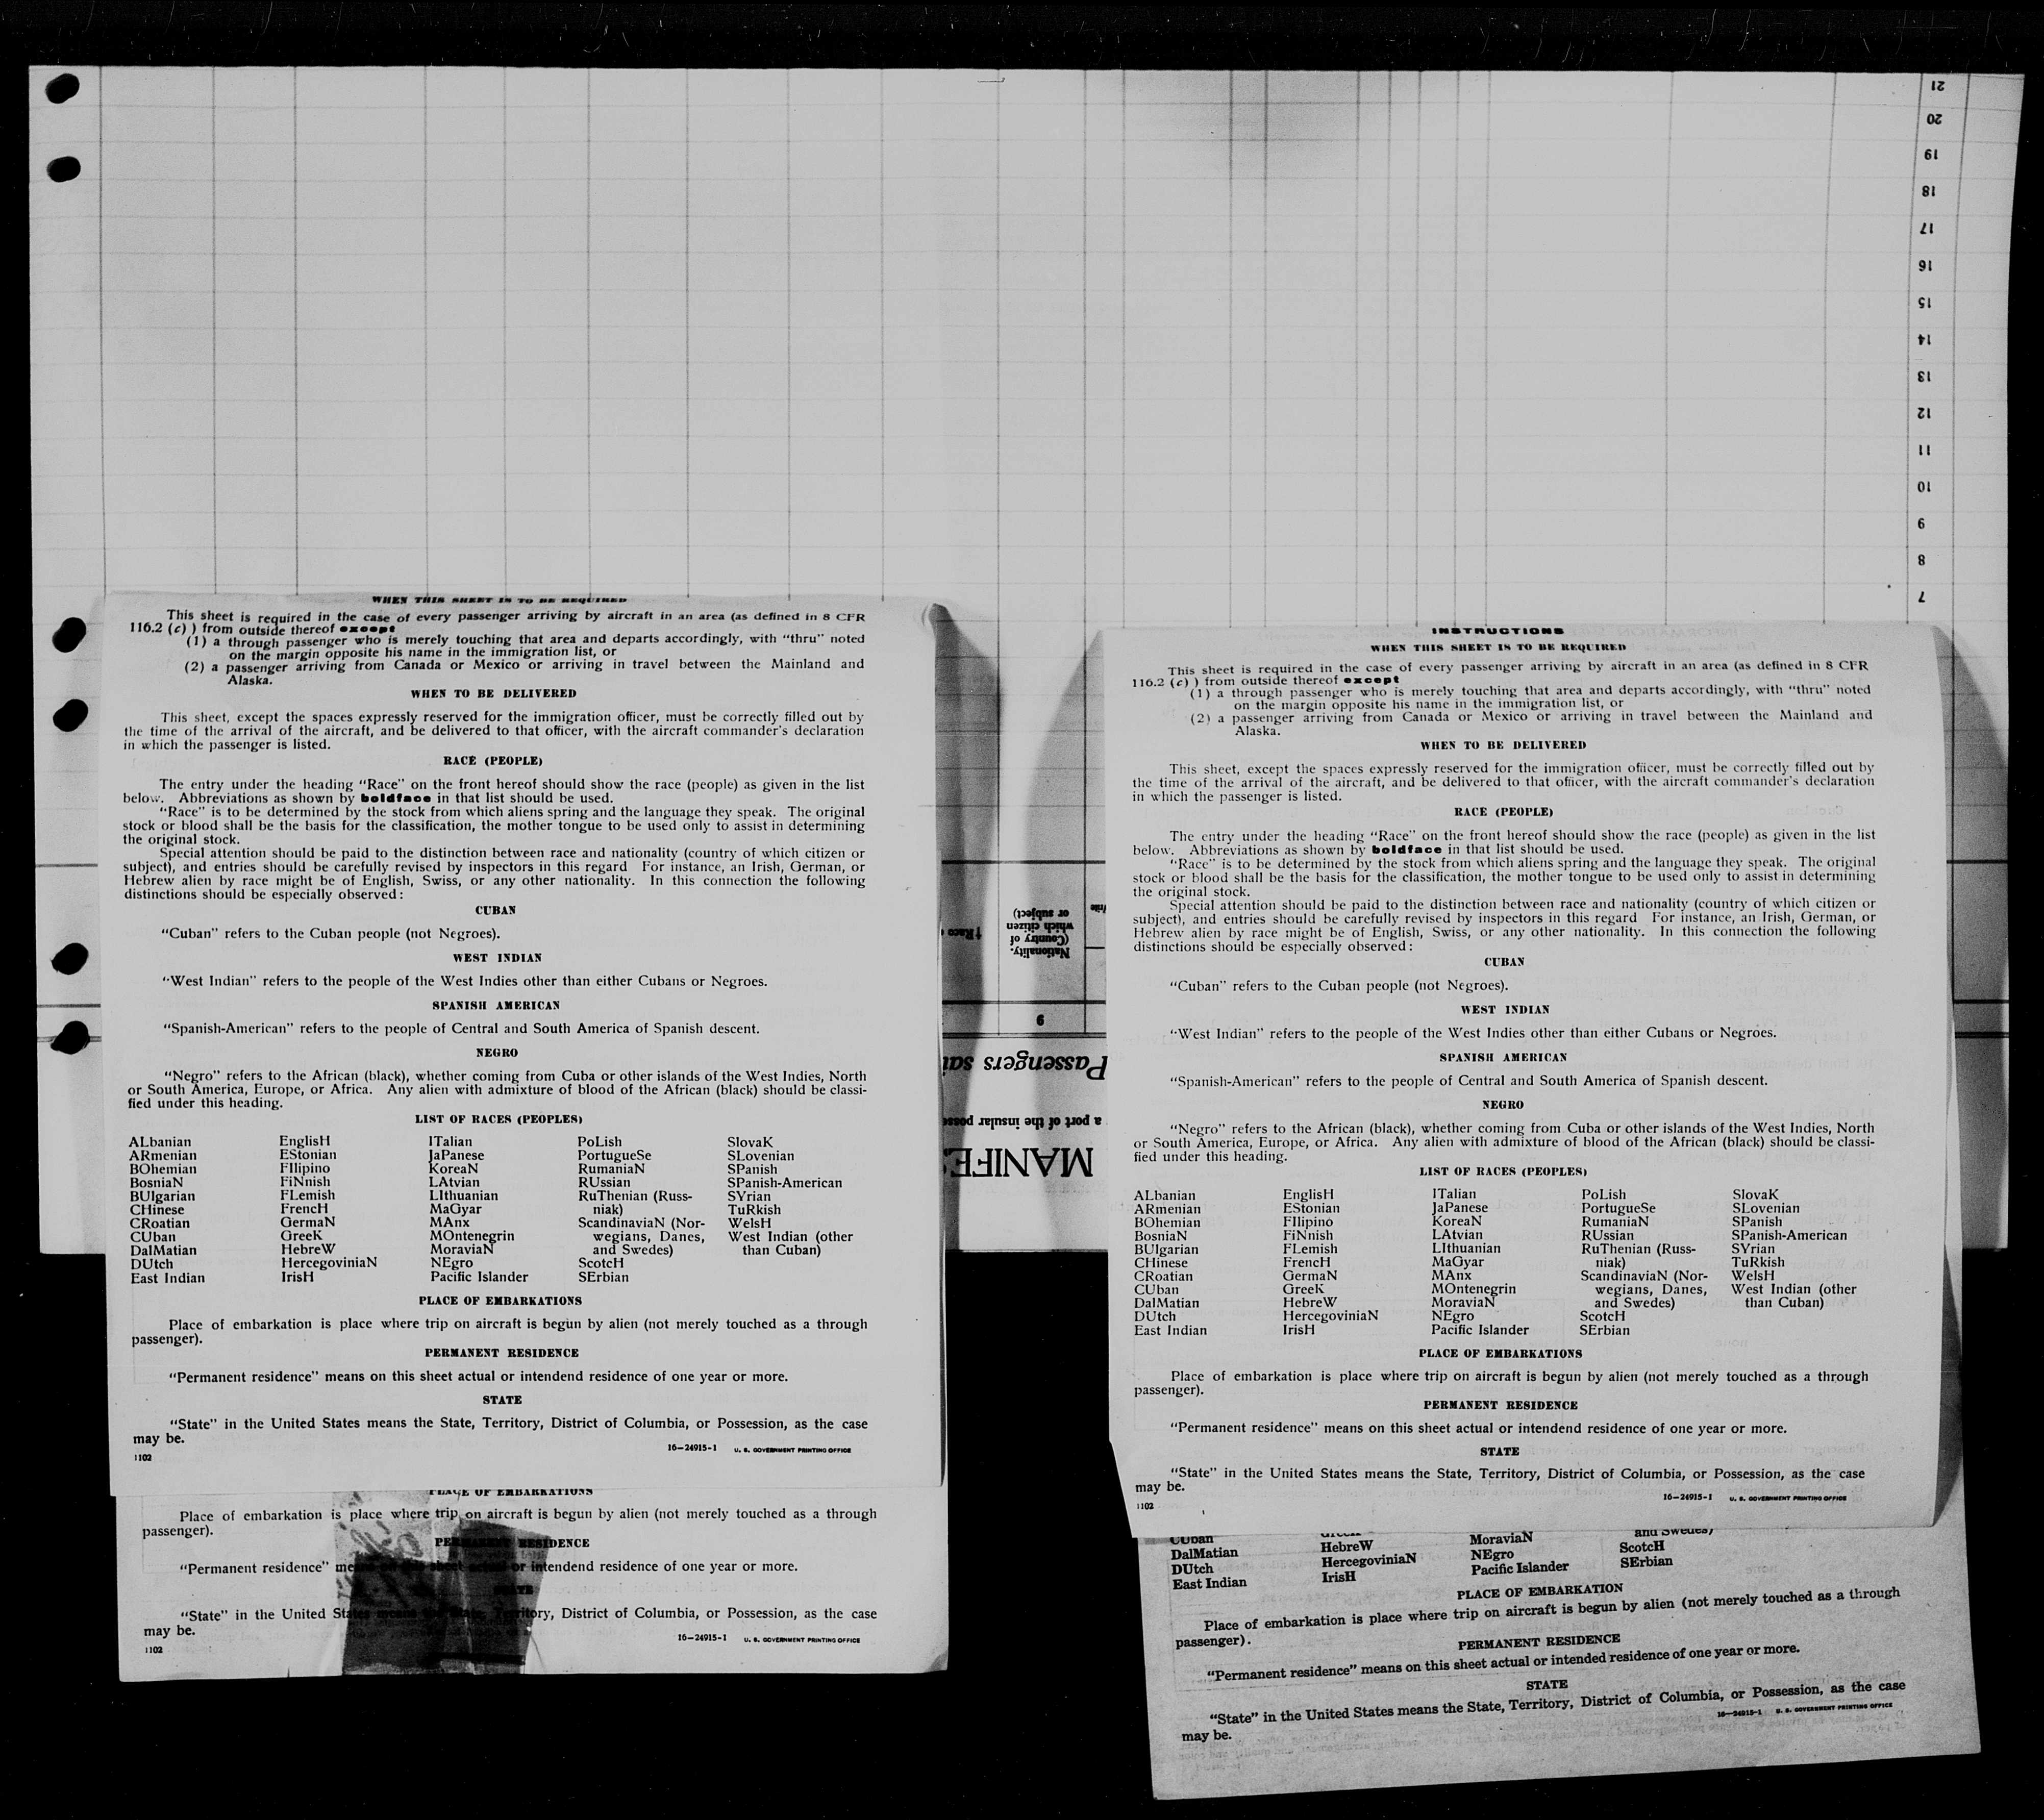 21
20
19
18
17
16
15
14
13
12
11
10
9
8
7
WHEN THIS SHEET IS TO BE REQUIRED
This sheet is required in the case of every passenger arriving by aircraft in an area (as defined in 8 CFR
116.2 (c) ) from outside thereof except
(1) a through passenger who is merely touching that area and departs accordingly, with “thru” noted
on the margin opposite his name in the immigration list, or
(2) a passenger arriving from Canada or Mexico or arriving in travel between the Mainland and
Alaska.
WHEN TO BE DELIVERED
This sheet, except the spaces expressly reserved for the immigration officer, must be correctly filled out by
the time of the arrival of the aircraft, and be delivered to that officer, with the aircraft commander's declaration
in which the passenger is listed.
RACE (PEOPLE)
The entry under the heading “Race” on the front hereof should show the race (people) as given in the list
below. Abbreviations as shown by boldface in that list should be used.
“Race” is to be determined by the stock from which aliens spring and the language they speak. The original
stock or blood shall be the basis for the classification, the mother tongue to be used only to assist in determining
the original stock.
Special attention should be paid to the distinction between race and nationality (country of which citizen or
subject), and entries should be carefully revised by inspectors in this regard For instance, an Irish, German, or
Hebrew alien by race might be of English, Swiss, or any other nationality. In this connection the following
distinctions should be especially observed:
CUBAN
“Cuban” refers to the Cuban people (not Negroes).
WEST INDIAN
“West Indian” refers to the people of the West Indies other than either Cubans or Negroes.
SPANISH AMERICAN
“Spanish-American” refers to the people of Central and South America of Spanish descent.
NEGRO
“Negro” refers to the African (black), whether coming from Cuba or other islands of the West Indies, North
or South America, Europe, or Africa. Any alien with admixture of blood of the African (black) should be classi-
fied under this heading.
LIST OF RACES (PEOPLES)
ALbanian EnglisH ITalian PoLish SlovaK
ARmenian EStonian JaPanese PortugueSe SLovenian
BOhemian FIlipino KoreaN RumaniaN SPanish
BosniaN FiNnish LAtvian RUssian SPanish-American
BUlgarian FLemish LIthuanian RuThenian (Russ- SYrian
CHinese FrencH MaGyar niak) TuRkish
CRoatian GermaN MAnx ScandinaviaN (Nor- WelsH
CUban GreeK MOntenegrin wegians, Danes, West Indian (other
DalMatian HebreW MoraviaN and Swedes) than Cuban)
DUtch HercegoviniaN NEgro ScotcH
East Indian IrisH Pacific Islander SErbian
PLACE OF EMBARKATIONS
Place of embarkation is place where trip on aircraft is begun by alien (not merely touched as a through
passenger).
PERMANENT RESIDENCE
“Permanent residence” means on this sheet actual or intendend residence of one year or more.
STATE
“State” in the United States means the State, Territory, District of Columbia, or Possession, as the case
may be.
16—24915-1 U. S. GOVERNMENT PRINTING OFFICE
1102
PLACE OF EMBARKATIONS
Place of embarkation is place where trip on aircraft is begun by alien (not merely touched as a through
passenger).
PERMANENT RESIDENCE
“Permanent residence” means on this sheet actual or intendend residence of one year or more.
STATE
“State” in the United States means the State, Territory, District of Columbia, or Possession, as the case
may be.
16—24915-1 U. S. GOVERNMENT PRINTING OFFICE
1102
MANIFES
a port of the insular posse
Passengers sai
6
Nationality.
(Country of
which citizen
or subject)
†Race
INSTRUCTIONS
WHEN THIS SHEET IS TO BE REQUIRED
This sheet is required in the case of every passenger arriving by aircraft in an area (as defined in 8 CFR
116.2 (c) ) from outside thereof except
(1) a through passenger who is merely touching that area and departs accordingly, with “thru” noted
on the margin opposite his name in the immigration list, or
(2) a passenger arriving from Canada or Mexico or arriving in travel between the Mainland and
Alaska.
WHEN TO BE DELIVERED
This sheet, except the spaces expressly reserved for the immigration officer, must be correctly filled out by
the time of the arrival of the aircraft, and be delivered to that officer, with the aircraft commander's declaration
in which the passenger is listed.
RACE (PEOPLE)
The entry under the heading “Race” on the front hereof should show the race (people) as given in the list
below. Abbreviations as shown by boldface in that list should be used.
“Race” is to be determined by the stock from which aliens spring and the language they speak. The original
stock or blood shall be the basis for the classification, the mother tongue to be used only to assist in determining
the original stock.
Special attention should be paid to the distinction between race and nationality (country of which citizen or
subject), and entries should be carefully revised by inspectors in this regard For instance, an Irish, German, or
Hebrew alien by race might be of English, Swiss, or any other nationality. In this connection the following
distinctions should be especially observed:
CUBAN
“Cuban” refers to the Cuban people (not Negroes).
WEST INDIAN
“West Indian” refers to the people of the West Indies other than either Cubans or Negroes.
SPANISH AMERICAN
“Spanish-American” refers to the people of Central and South America of Spanish descent.
NEGRO
“Negro” refers to the African (black), whether coming from Cuba or other islands of the West Indies, North
or South America, Europe, or Africa. Any alien with admixture of blood of the African (black) should be classi-
fied under this heading.
LIST OF RACES (PEOPLES)
ALbanian EnglisH ITalian PoLish SlovaK
ARmenian EStonian JaPanese PortugueSe SLovenian
BOhemian FIlipino KoreaN RumaniaN SPanish
BosniaN FiNnish LAtvian RUssian SPanish-American
BUlgarian FLemish LIthuanian RuThenian (Russ- SYrian
CHinese FrencH MaGyar niak) TuRkish
CRoatian GermaN MAnx ScandinaviaN (Nor- WelsH
CUban GreeK MOntenegrin wegians, Danes, West Indian (other
DalMatian HebreW MoraviaN and Swedes) than Cuban)
DUtch HercegoviniaN NEgro ScotcH
East Indian IrisH Pacific Islander SErbian
PLACE OF EMBARKATIONS
Place of embarkation is place where trip on aircraft is begun by alien (not merely touched as a through
passenger).
PERMANENT RESIDENCE
“Permanent residence” means on this sheet actual or intendend residence of one year or more.
STATE
“State” in the United States means the State, Territory, District of Columbia, or Possession, as the case
may be.
16—24915-1 U. S. GOVERNMENT PRINTING OFFICE
1102
CUban GreeK MoraviaN and Swedes)
DalMatian HebreW NEgro ScotcH
DUtch HercegoviniaN Pacific Islander SErbian
East Indian IrisH
PLACE OF EMBARKATION
Place of embarkation is place where trip on aircraft is begun by alien (not merely touched as a through
passenger).
PERMANENT RESIDENCE
“Permanent residence” means on this sheet actual or intended residence of one year or more.
STATE
“State” in the United States means the State, Territory, District of Columbia, or Possession, as the case
may be.
16—24915-1 U. S. GOVERNMENT PRINTING OFFICE